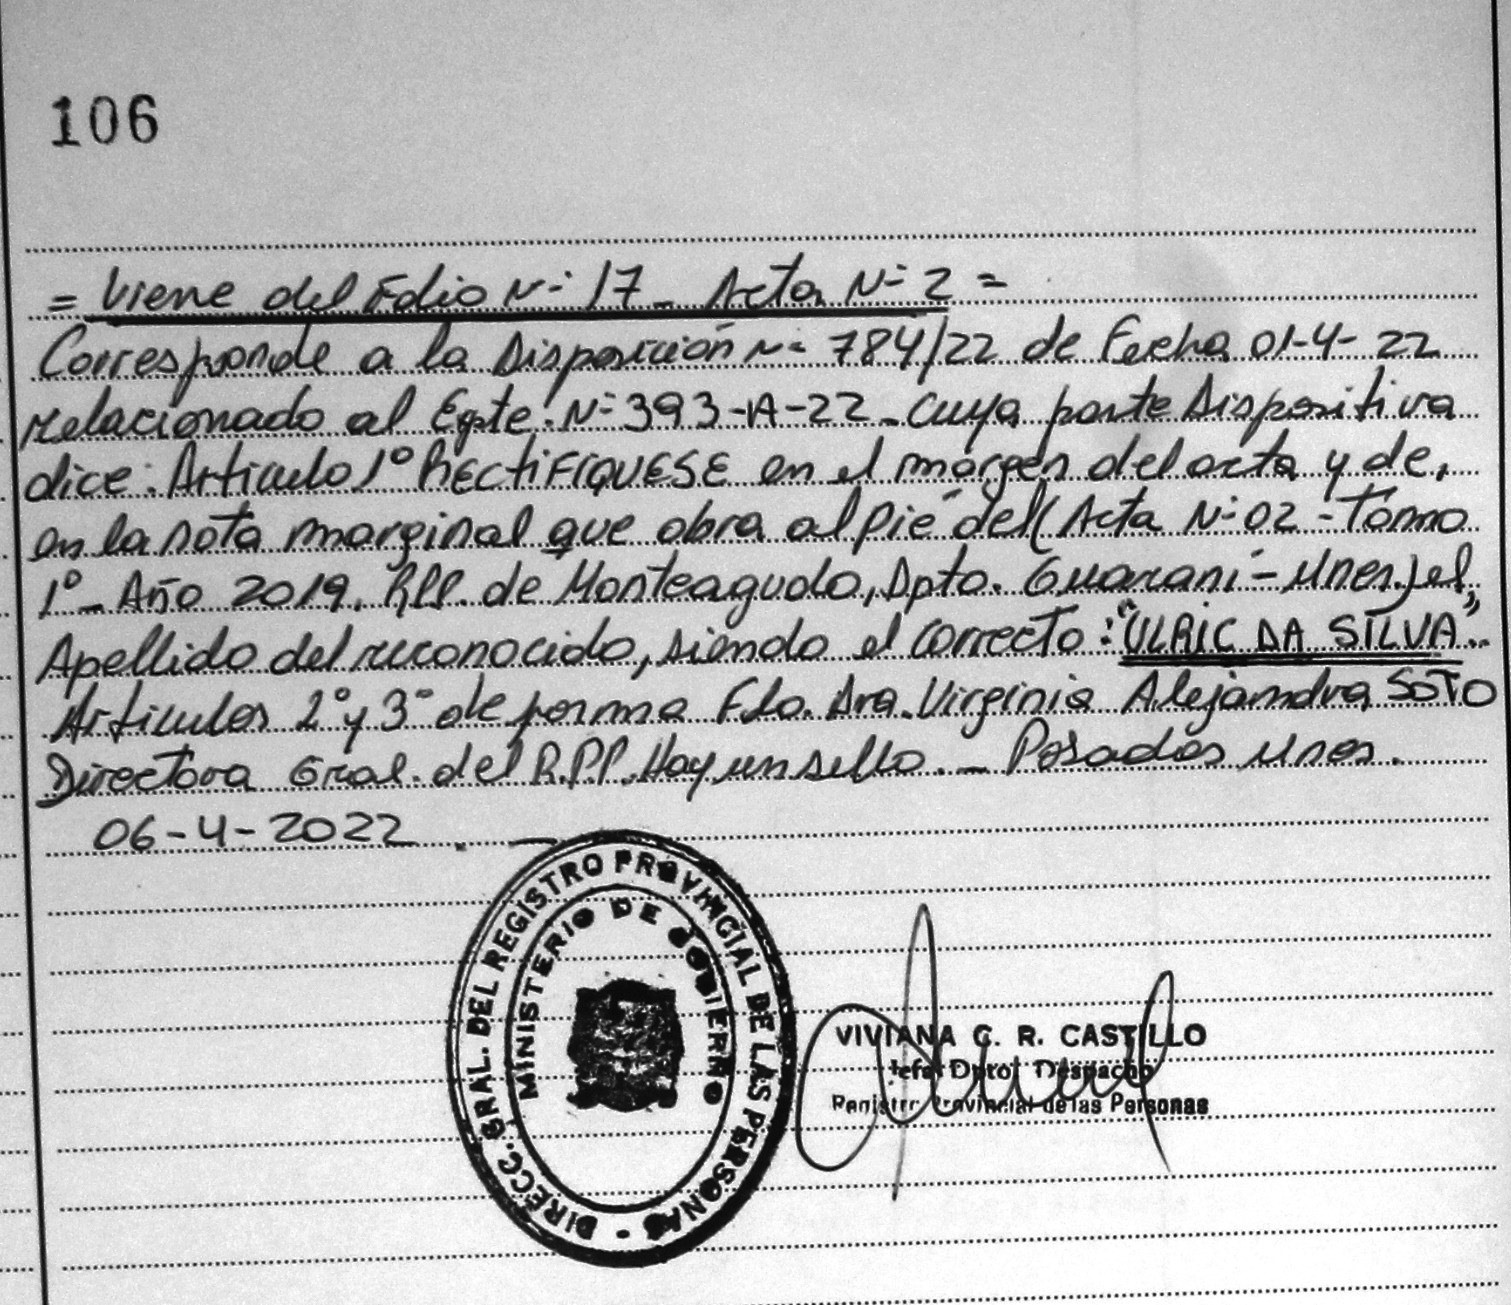 106
= Viene del Folio Nº 17 - Acta Nº 2 =
Corresponde a la Disposición Nº 784/22 de Fecha 01-4-22
relacionado al Epte. Nº 393-A-22 - Cuya parte Dispositiva
dice: Artículo 1º RECTIFIQUESE en el márgen del acta y de,
en la nota marginal que obra al pié del (Acta Nº 02 - Tomo
1º - Año 2019. Rll. de Monteagudo, Dpto. Guaraní - Mnes.) el,
Apellido del reconocido, siendo el correcto: "ULRIC DA SILVA".
Artículos 2º y 3º de forma Fdo. Dra. Virginia Alejandra SOTO
Directora Gral. del R.P.P. Hay un sello. - Posadas Mnes.
06-4-2022.
DIRECC. GRAL. DEL REGISTRO PROVINCIAL DE LAS PERSONAS -
MINISTERIO DE GOBIERNO
VIVIANA G. R. CASTILLO
Jefa Dpto. Despacho
Registro Provincial de las Personas